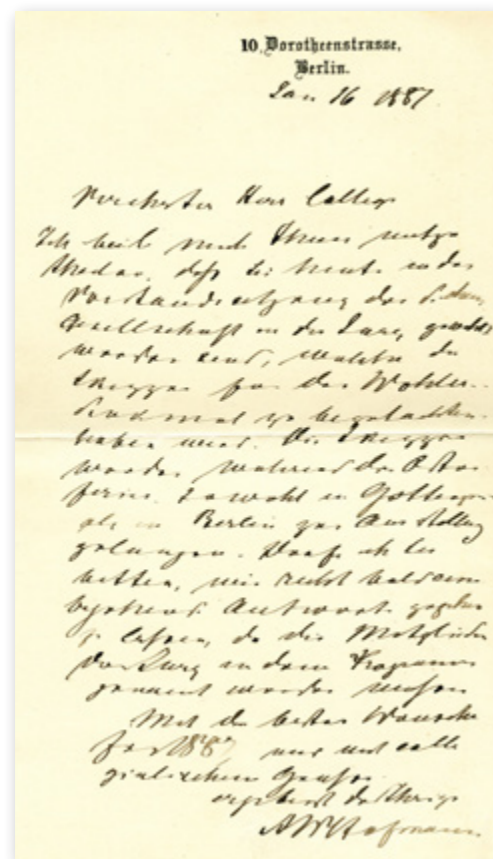 10, Dorotheenstrasse,
Berlin.
Jan 16 1887.
Verehrter Herr College
Ich beeile mich Ihnen mitzu
theilen, daß Sie heute in der
Vorstandssitzung der d. chem.
Gesellschaft in die Jury gewählt
worden sind, welche die
Skizzen für das Wöhler-
denkmal zu begutachten
haben wird. Die Skizzen
werden während der Oster
ferien sowohl in Göttingen
als in Berlin zur Ausstellung
gelangen. Darf ich Sie
bitten, mir recht bald eine
Antwort zugehen
zu lassen, da die Mitglieder
der Jury in dem Programm
genannt werden müssen
Mit den besten Wünschen
für 1887 und mit colle
gialischem Grusse
ergebenst der Ihrige
AWHofmann